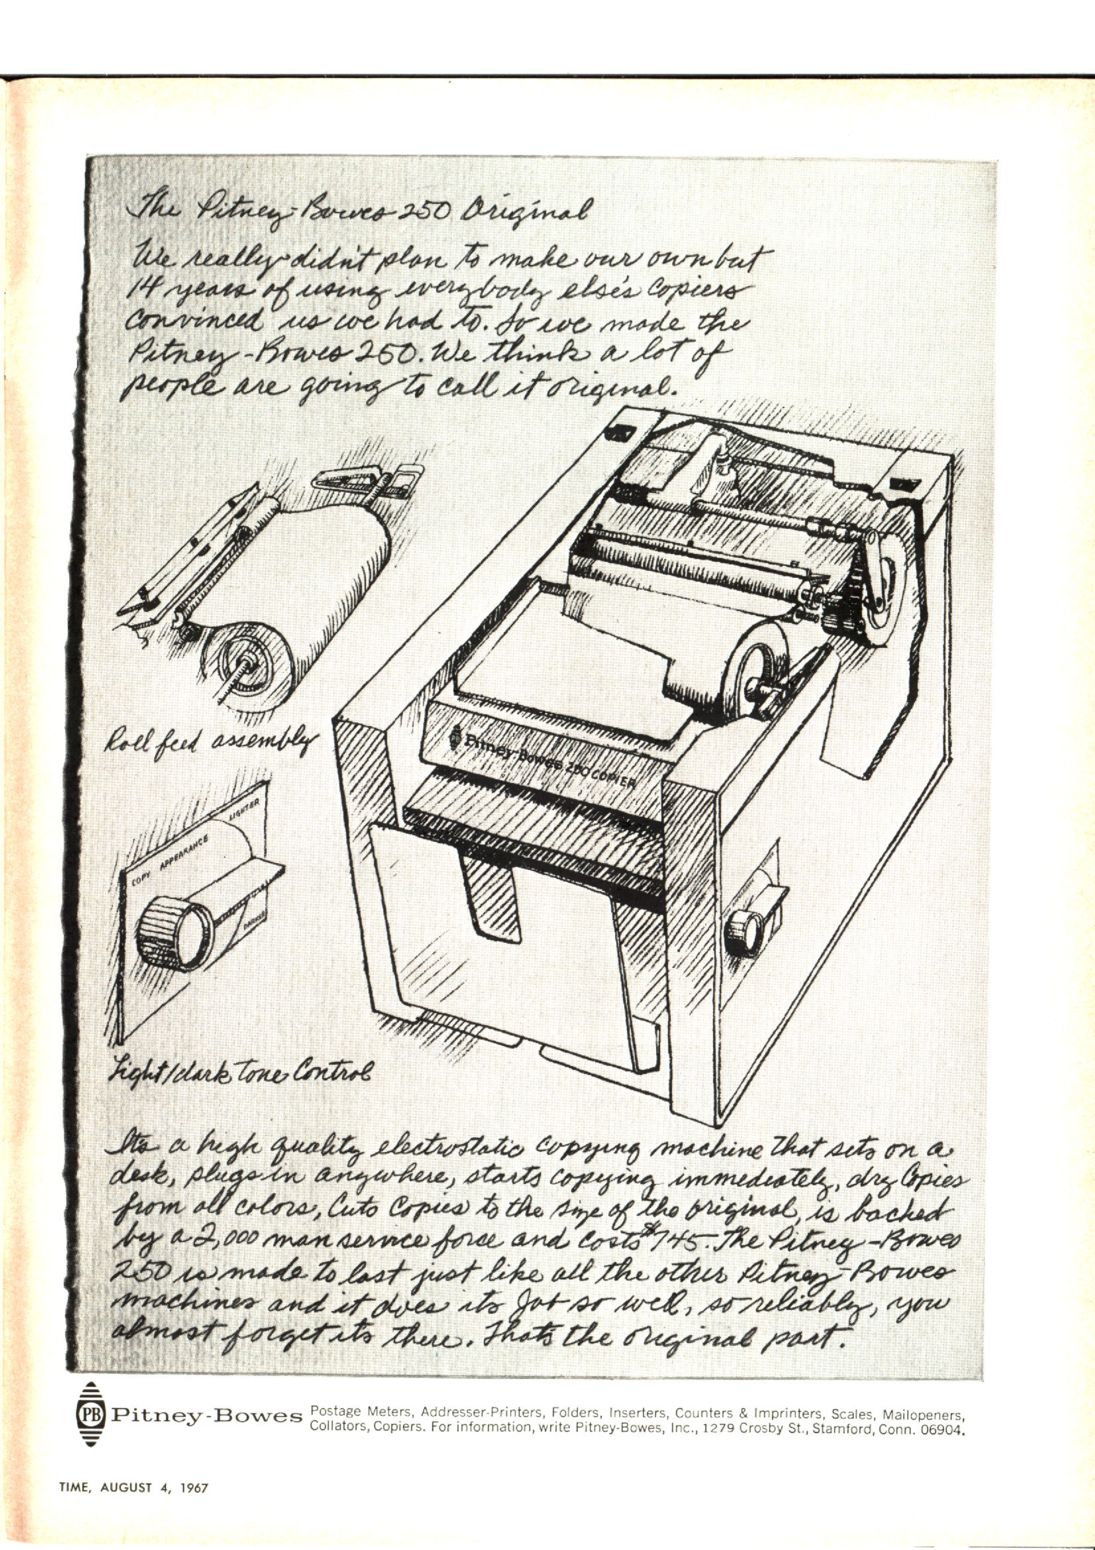 The Pitney-Bowes 250 Original
We really didn't plan to make our own but
14 years of using everybody else's copiers
convinced us we had to. So we made the
Pitney-Bowes 250. We think a lot of
people are going to call it original.
Roll feed assembly
Pitney-Bowes 250 COPIER
COPY APPEARANCE LIGHTER
DARKER
Light/dark tone Control
It's a high quality electrostatic copying machine that sets on a
desk, plugs in anywhere, starts copying immediately, dry copies
from all colors, cuts copies to the size of the original, is backed
by a 2,000 man service force and costs $745. The Pitney-Bowes
250 is made to last just like all the other Pitney-Bowes
machines and it does its job so well, so reliably, you
almost forget it's there. That's the original part.
PB Pitney-Bowes Postage Meters, Addresser-Printers, Folders, Inserters, Counters & Imprinters, Scales, Mailopeners,
Collators, Copiers. For information, write Pitney-Bowes, Inc., 1279 Crosby St., Stamford, Conn. 06904.
TIME, AUGUST 4, 1967